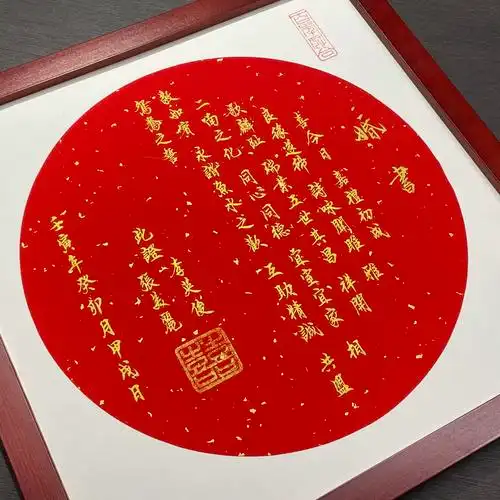 婚書
喜今日 嘉禮初成
良緣遂締 詩咏關雎 雅
歌麟趾 瑞葉五世其昌 祥開
二南之化 同心同德 宜室宜家 相
敬如賓 永諧魚水之歡 互助精誠 共盟
鴛鴦之誓
此證
李英俊
張美麗
壬寅年癸卯月甲戌日